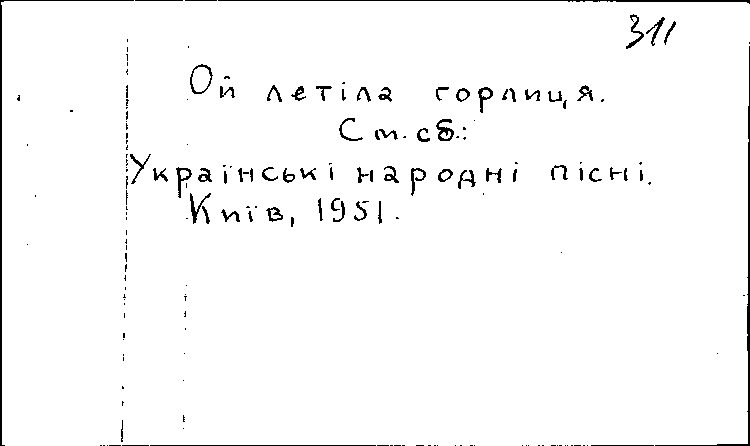 311
Ой летіла горлиця.
См. сб.:
Українські народні пісні.
Київ, 1951.